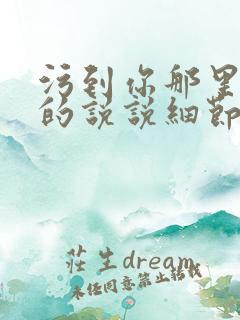 污到你那里湿
的说说细节
莊生dream
未经同意禁止转载